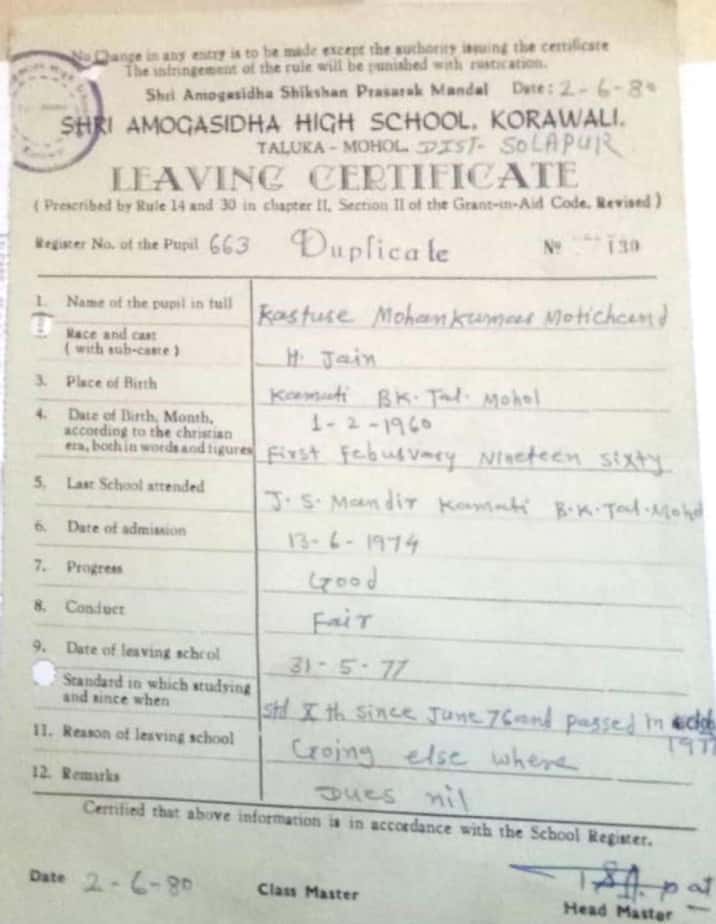 No Change in any entry is to be made except the authority issuing the certificate
The infringement of the rule will be punished with rustication.
Shri Amogasidha Shikshan Prasarak Mandal Date: 2-6-80
SHRI AMOGASIDHA HIGH SCHOOL, KORAWALI.
TALUKA - MOHOL. DIST- SOLAPUR
LEAVING CERTIFICATE
( Prescribed by Rule 14 and 30 in chapter II, Section II of the Grant-in-Aid Code, Revised )
Register No. of the Pupil 663 Duplicate No 130
1. Name of the pupil in full Kastuse Mohankumar Motichand
Race and cast
( with sub-caste ) H. Jain
3. Place of Birth Kamati BK. Tal. Mohol
4. Date of Birth, Month, 1-2-1960
according to the christian
era, both in words and figures First Februvary Nineteen sixty
5. Last School attended J. S. Mandir Kamati B.K. Tal. Mohol
6. Date of admission 13-6-1974
7. Progress Good
8. Conduct Fair
9. Date of leaving school 31-5-77
Standard in which studying
and since when Std X th since June 76 and passed in
1977
11. Reason of leaving school Going else where
12. Remarks Dues nil
Certified that above information is in accordance with the School Register.
Date 2-6-80 Class Master
Head Master